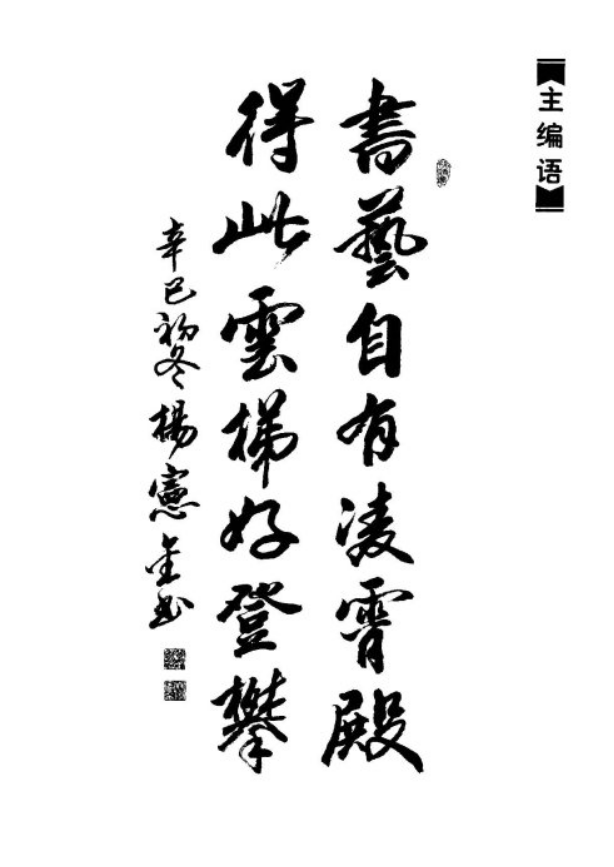 主编语
書藝自有凌霄殿
得此雲梯好登攀
辛巳初冬楊憲金书